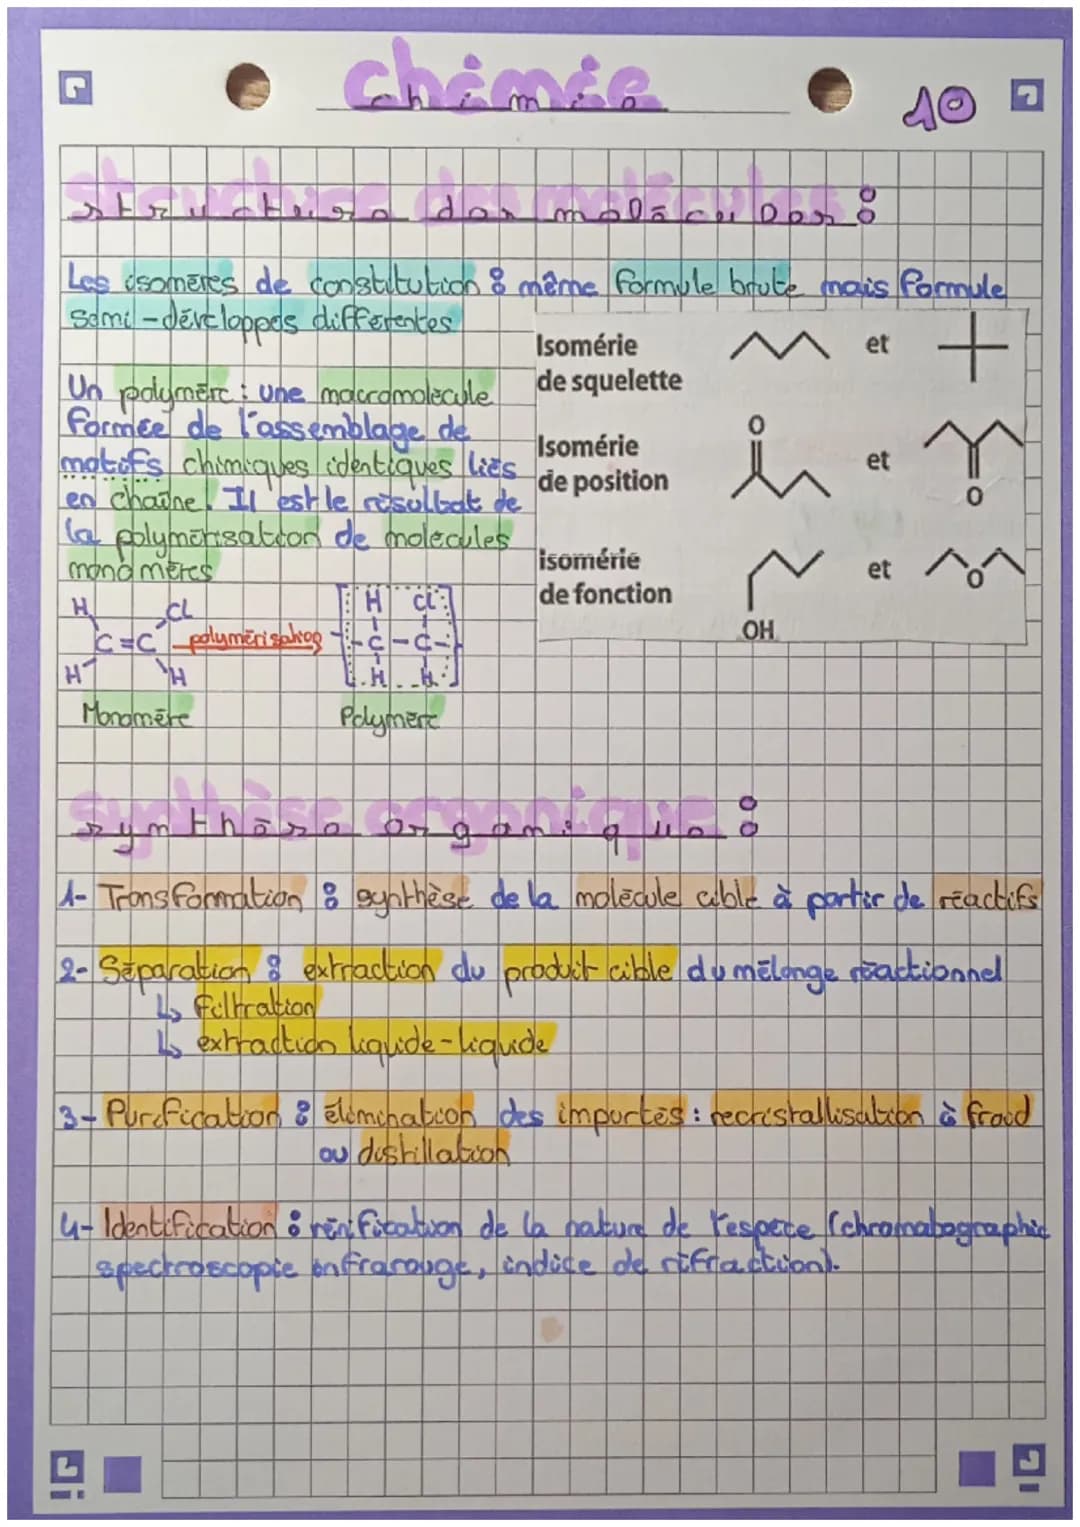 chimie
10
structure des molécules :
Les isomères de constitution : même formule brute mais formule
semi-développées différentes
Isomérie
de squelette
et
Un polymère : une macromolécule
formée de l'assemblage de
motifs chimiques identiques liés
en chaîne. Il est le résultat de
la polymérisation de molécules
monomères
Isomérie
de position
O
et
O
isomérie
de fonction
OH
et
O
H Cl
C=C polymérisation
H H
H Cl
-C-C-
H H
Monomère Polymère
synthèse organique :
1- Transformation : synthèse de la molécule cible à partir de réactifs
2- Séparation : extraction du produit cible du mélange réactionnel
↳ filtration
↳ extraction liquide-liquide
3- Purification : élimination des impurtés : recristallisation à froid
ou distillation
4- Identification : vérification de la nature de l'espèce (chromatographie
spectroscopie infrarouge, indice de réfraction).